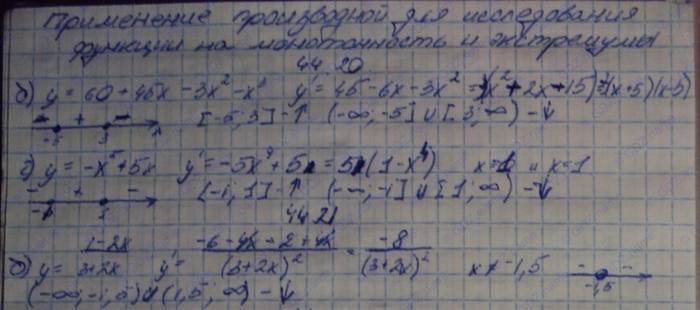 Применение производной для исследования
функции на монотонность и экстремумы
44 20
б) y = 60 + 45x - 3x² - x³ y' = 45 - 6x - 3x² = (x² + 2x + 15) = (x+5)(x-3)
- + - -5 3 x [-5; 3] - ↑ (-∞; -5] ∪ [3; ∞) - ↓
г) y = -x⁵ + 5x y' = -5x⁴ + 5 = 5(1 - x⁴) x = и x = 1
- + - -1 1 [-1; 1] - ↑ (-∞; -1] ∪ [1; ∞) - ↓
44 21
б) y = (1-2x)/(3+2x) y' = (-6-4x-2+4x)/(3+2x)² = -8/(3+2x)² x ≠ -1,5 - - -1,5
(-∞; -1,5) ∪ (1,5; ∞) - ↓